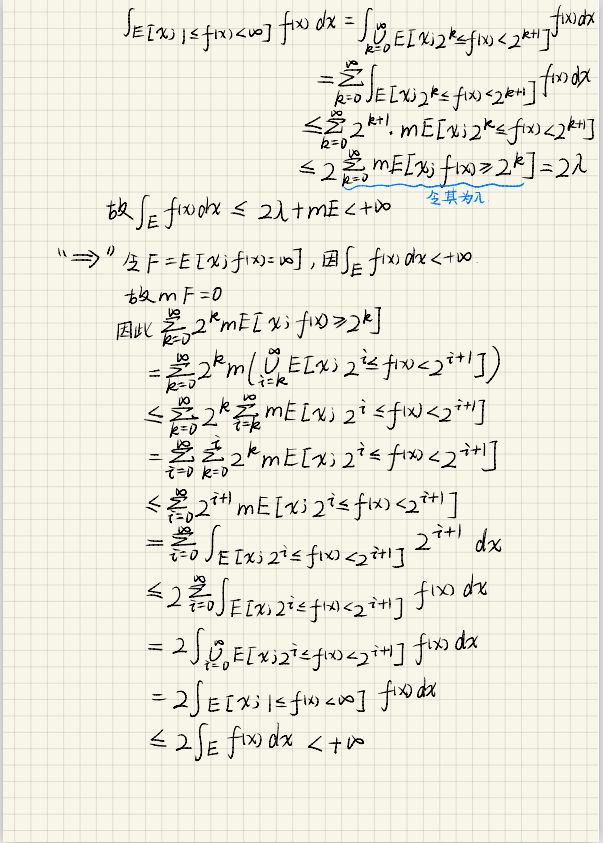 ∫_{E[x; 1≤f(x)<∞]} f(x)dx = ∫_{⋃_{k=0}^{∞} E[x; 2^k≤f(x)<2^{k+1}]} f(x)dx
= ∑_{k=0}^{∞} ∫_{E[x; 2^k≤f(x)<2^{k+1}]} f(x)dx
≤ ∑_{k=0}^{∞} 2^{k+1}·mE[x; 2^k≤f(x)<2^{k+1}]
≤ 2 ∑_{k=0}^{∞} mE[x; f(x)≥2^k] = 2λ
令其为λ
故 ∫_E f(x)dx ≤ 2λ+mE<+∞
“⟹” 令F=E[x; f(x)=∞], 因∫_E f(x)dx<+∞.
故mF=0
因此 ∑_{k=0}^{∞} 2^k mE[x; f(x)≥2^k]
= ∑_{k=0}^{∞} 2^k m(⋃_{i=k}^{∞} E[x; 2^i≤f(x)<2^{i+1}])
≤ ∑_{k=0}^{∞} 2^k ∑_{i=k}^{∞} mE[x; 2^i≤f(x)<2^{i+1}]
= ∑_{i=0}^{∞} ∑_{k=0}^{i} 2^k mE[x; 2^i≤f(x)<2^{i+1}]
≤ ∑_{i=0}^{∞} 2^{i+1} mE[x; 2^i≤f(x)<2^{i+1}]
= ∑_{i=0}^{∞} ∫_{E[x; 2^i≤f(x)<2^{i+1}]} 2^{i+1} dx
≤ 2 ∑_{i=0}^{∞} ∫_{E[x; 2^i≤f(x)<2^{i+1}]} f(x)dx
= 2 ∫_{⋃_{i=0}^{∞} E[x; 2^i≤f(x)<2^{i+1}]} f(x)dx
= 2 ∫_{E[x; 1≤f(x)<∞]} f(x)dx
≤ 2 ∫_E f(x)dx <+∞